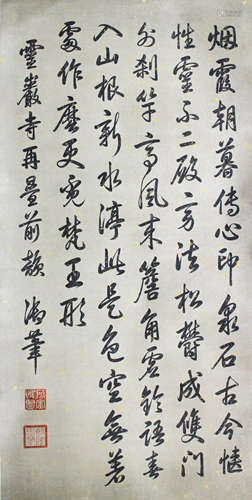 烟霞朝暮傳心印泉石古今愜
性靈不二殿旁法松鬱成雙門
外刹竿亭風來簷角虛鈴語春
入山根新水渟此是色空無著
處作麽更覓梵王形
靈巖寺再疊前韻 御筆